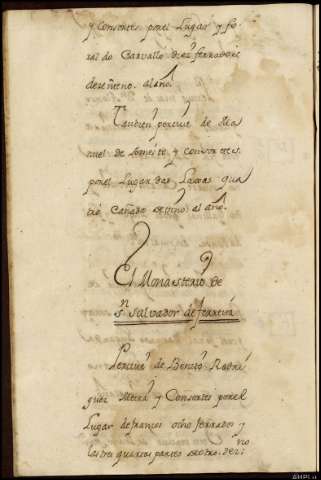 y Consortes por el Lugar y fo
ral do Carvallo diez ferrados
de senteno al año.
Tambien percive de Ma
nuel de y consortes
por el Lugar das Lamas qua
tro Cañados de vino al año.
El Monasterio de
Sn Salvador de ferreira
Percive de Benito Rodri
guez Meira y Consortes por el
Lugar de francos ocho ferrados y
las tres quartas partes de otro. de
no